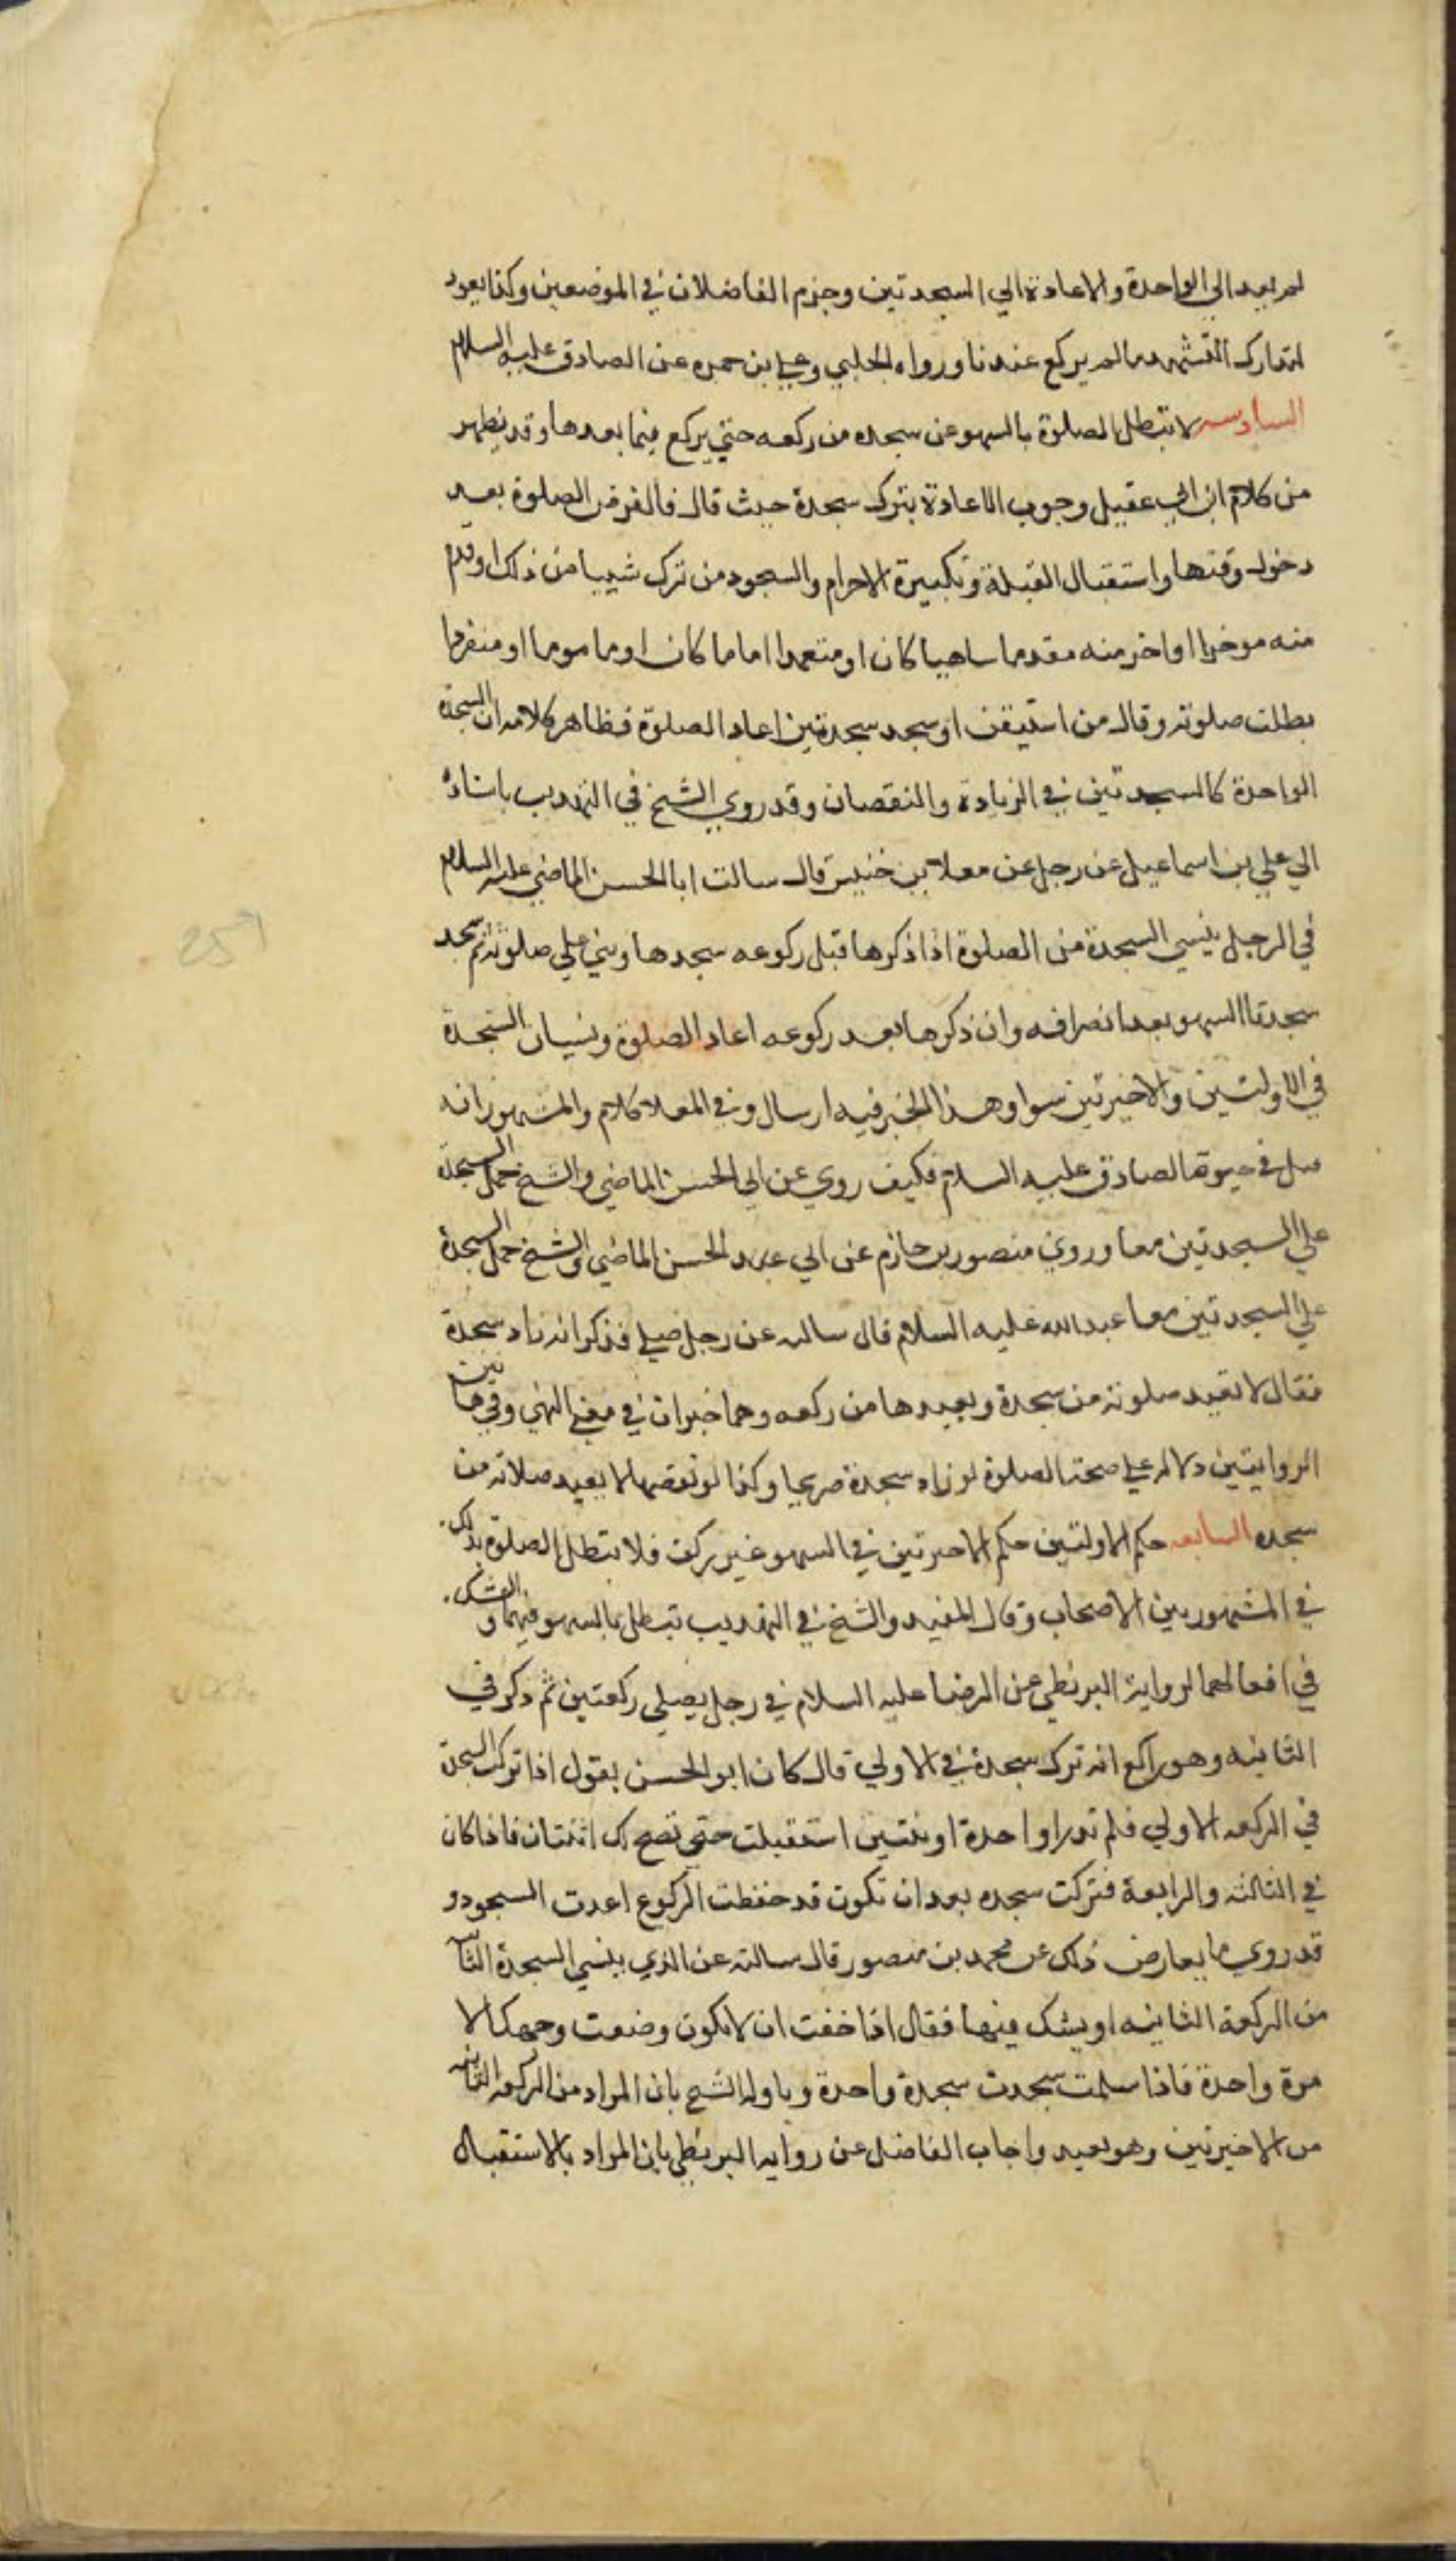 لم يعد الي الواحدة والاعادة الي السجدتين وجزم الفاضلان في الموضعين وكذا يعود
لتدارك التشهد ما لم يركع عندنا ورواه الحلبي وعلي بن حمزه عن الصادق عليه السلام
السادسه لا تبطل الصلوة بالسهو عن سجده من ركعه حتي يركع فيما بعدها وقد يظهر
من كلام ابن ابي عقيل وجوب الاعادة بترك سجدة حيث قال فالفرض الصلوة بعد
دخول وقتها واستقبال القبلة وتكبيرة الاحرام والسجود من ترك شييا من ذلك او قدم
منه موخرا او اخر منه مقدما ساهيا كان او متعمدا اماما كان او ماموما او منفردا
بطلت صلوته وقال من استيقن او سجد سجدتين اعاد الصلوة فظاهر كلامه ان السجدة
الواحدة كالسجدتين في الزيادة والنقصان وقد روي الشيخ في التهذيب باسناده
الي علي بن اسماعيل عن رجل عن معلا بن خنيس قال سالت ابا الحسن الماضي عليه السلام
في الرجل ينسي السجدة من الصلوة اذا ذكرها قبل ركوعه سجدها وبني علي صلوته ثم سجد
سجدتا السهو بعد انصرافه وان ذكرها بعد ركوعه اعاد الصلوة ونسيان السجدة
في الاولتين والاخيرتين سوا وهذا الخبر فيه ارسال وفي المعلا كلام والمشهور انه
قبل في حيوة الصادق عليه السلام فكيف روي عن ابي الحسن الماضي والشيخ حمل السجدة
علي السجدتين معا وروي منصور بن حازم عن ابي عبد الحسن الماضي والشيخ حمل السجدة
علي السجدتين معا عبد الله عليه السلام قال سالته عن رجل صلي فذكر انه زاد سجدة
فقال لا تعيد صلوته من سجدة ويعيدها من ركعه وهما خبران في معني النهي وفي هاتين
الروايتين دلاله علي صحة الصلوة لو زاد سجدة صريحا وكذا لو نقصها لا يعيد صلاته من
سجده السابعه حكم الاولتين حكم الاخيرتين في السهو غير ركن فلا تبطل الصلوة بذلك
في المشهور بين الاصحاب وقال المفيد والشيخ في التهذيب تبطل بالسهو فيهما والشك
في افعالهما لرواية البزنطي عن الرضا عليه السلام في رجل يصلي ركعتين ثم ذكر في
الثانيه وهو راكع انه ترك سجدة في الاولي قال كان ابو الحسن يقول اذا تركت السجدة
في الركعه الاولي فلم تدر واحدة او ثنتين استقبلت حتي تصح لك اثنتان فاذا كان
في الثالثه والرابعة فتركت سجده بعد ان تكون قد حفظت الركوع اعدت السجود و
قد روي ما يعارض ذلك عن محمد بن منصور قال سالته عن الذي ينسي السجدة الثانيه
من الركعة الثانيه او يشك فيها فقال اذا خفت ان لا تكون وضعت وجهك الا
مرة واحدة فاذا سلمت سجدت سجدة واحدة وياوله الشيخ بان المراد من الركعه الثانيه
من الاخيرتين وهو بعيد واجاب الفاضل عن روايه البزنطي بان المراد بالاستقبال